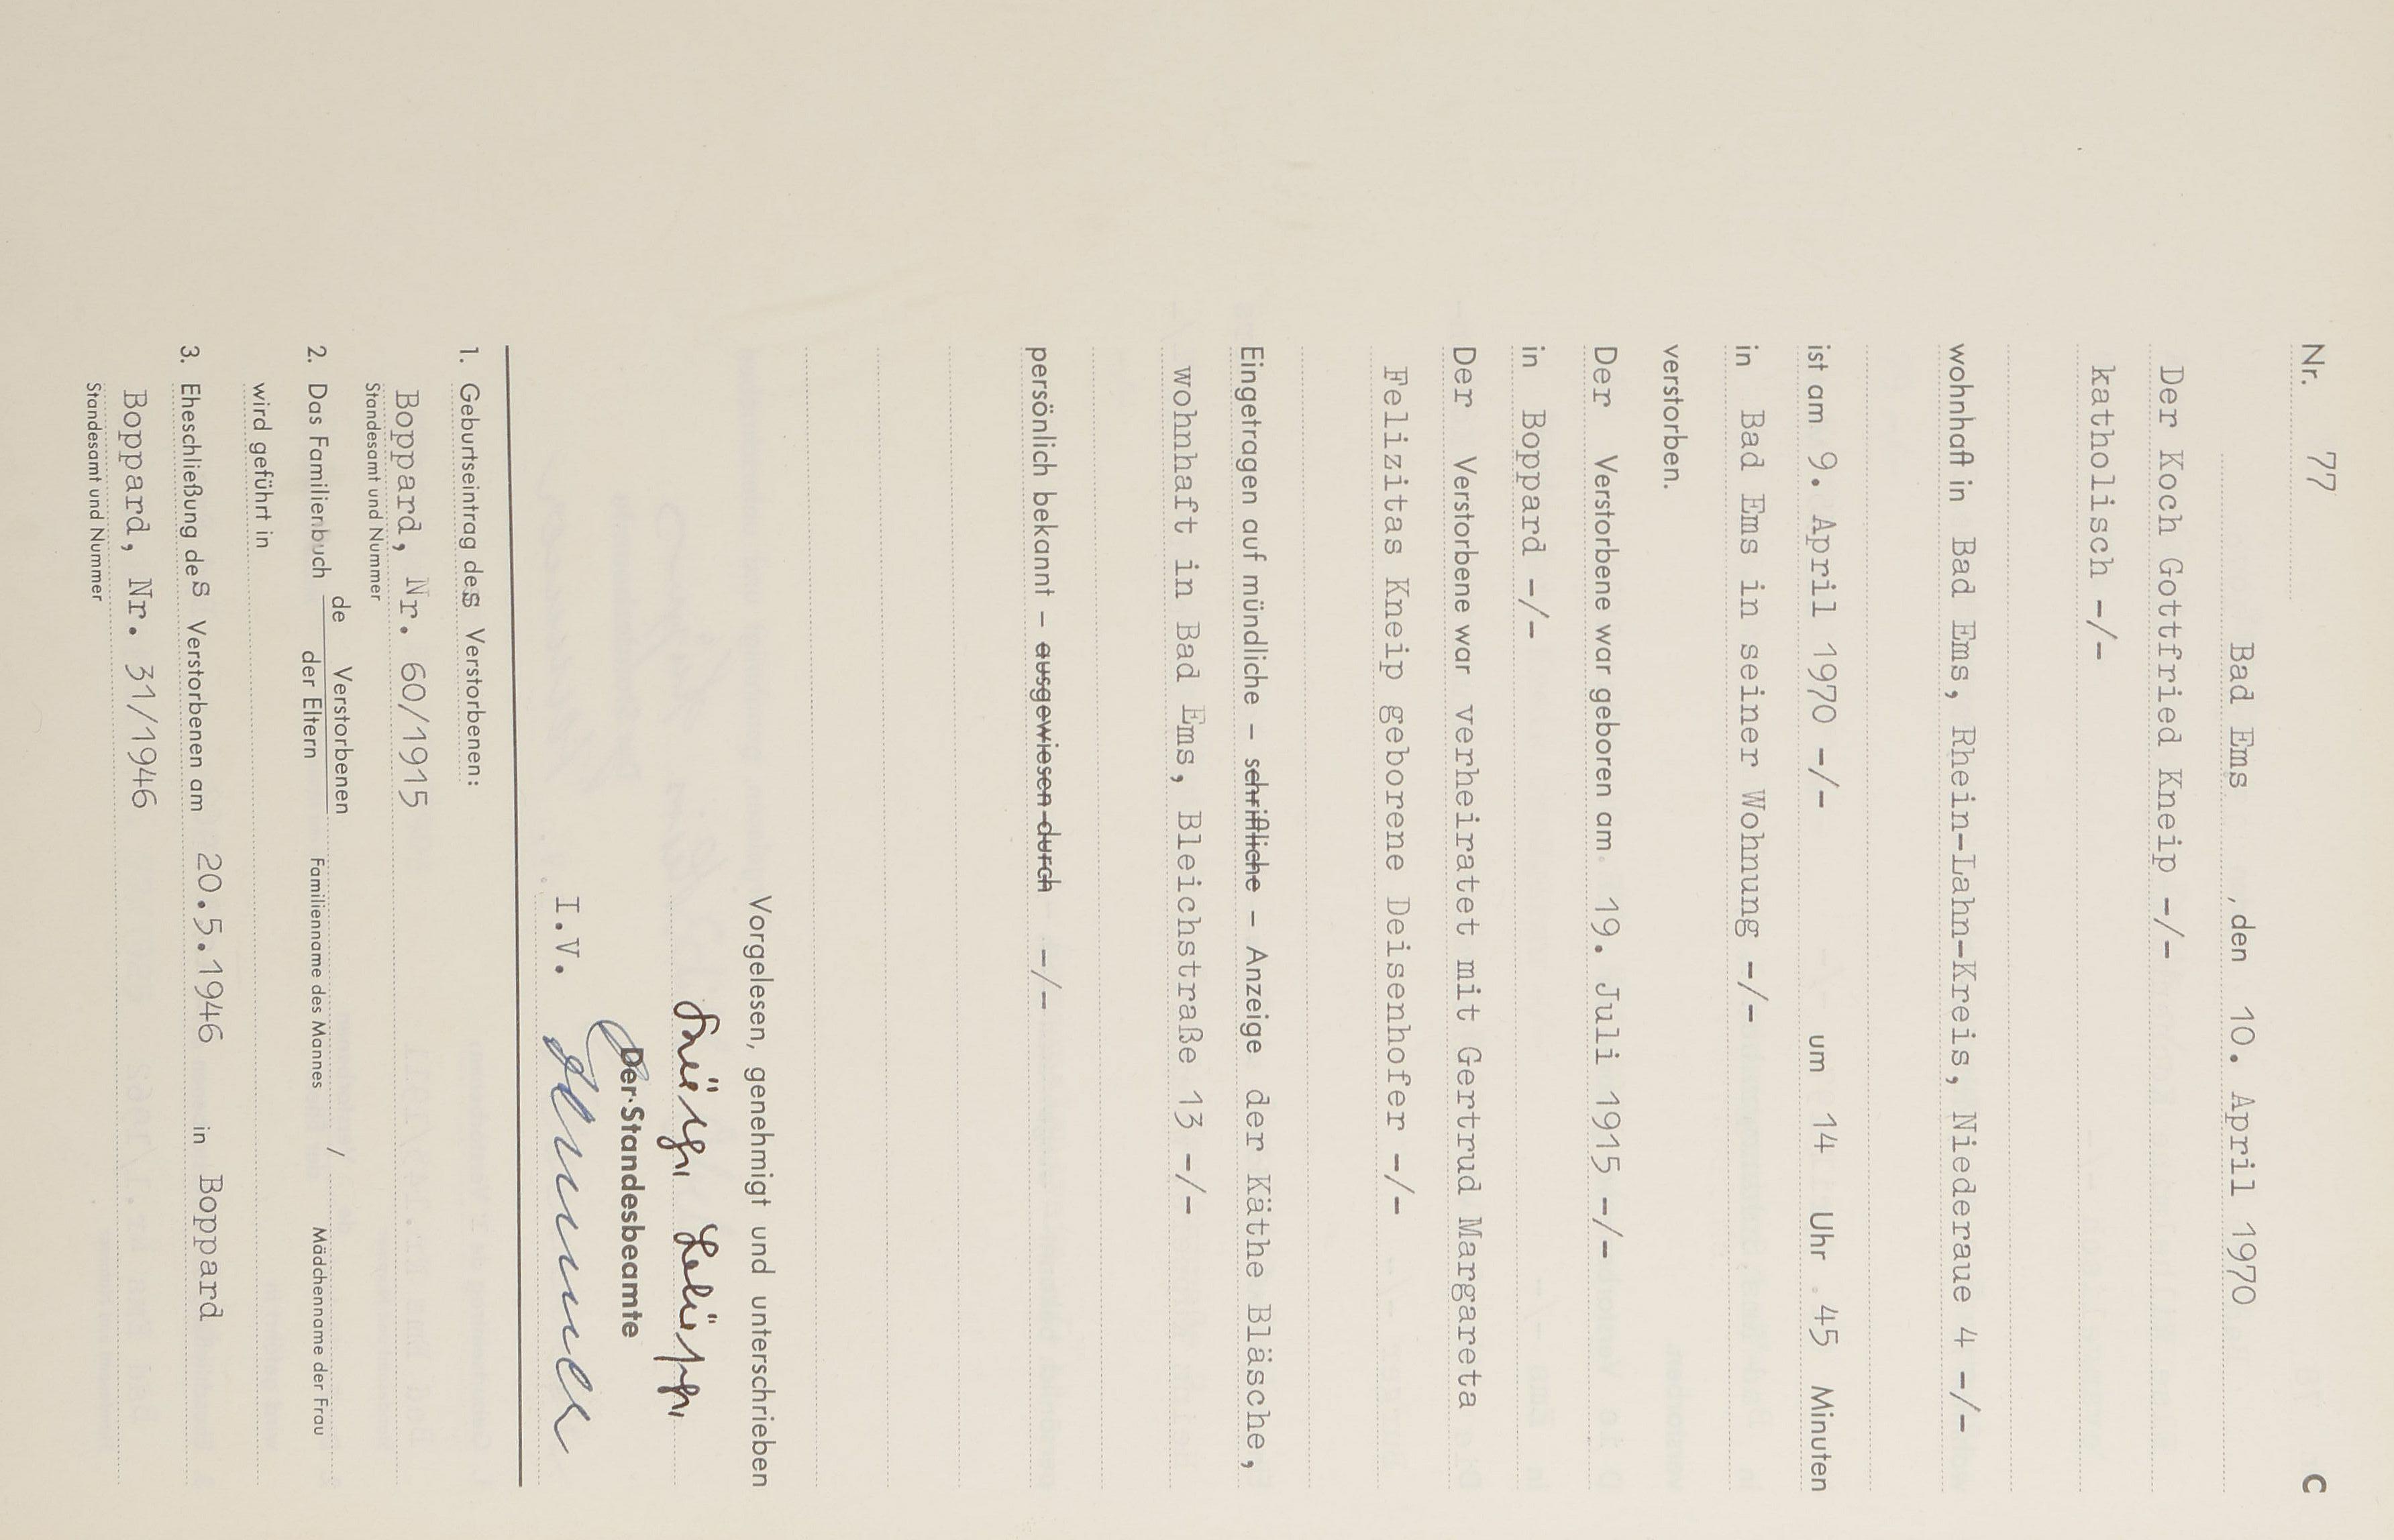 Nr. 77 C
Bad Ems, den 10. April 1970
Der Koch Gottfried Kneip -/-
katholisch -/-
wohnhaft in Bad Ems, Rhein-Lahn-Kreis, Niederaue 4 -/-
ist am 9. April 1970 -/- um 14 Uhr 45 Minuten
in Bad Ems in seiner Wohnung -/-
verstorben.
Der Verstorbene war geboren am 19. Juli 1915 -/-
in Boppard -/-
Der Verstorbene war verheiratet mit Gertrud Margareta
Felizitas Kneip geborene Deisenhofer -/-
Eingetragen auf mündliche - schriftliche - Anzeige der Käthe Bläsche,
wohnhaft in Bad Ems, Bleichstraße 13 -/-
persönlich bekannt - ausgewiesen durch -/-
Vorgelesen, genehmigt und unterschrieben
Der Standesbeamte
I.V.
1. Geburtseintrag des Verstorbenen:
Boppard, Nr. 60/1915
Standesamt und Nummer
2. Das Familienbuch de Verstorbenen / der Eltern
Familienname des Mannes Mädchenname der Frau
wird geführt in
3. Eheschließung des Verstorbenen am 20.5.1946 in Boppard
Boppard, Nr. 31/1946
Standesamt und Nummer